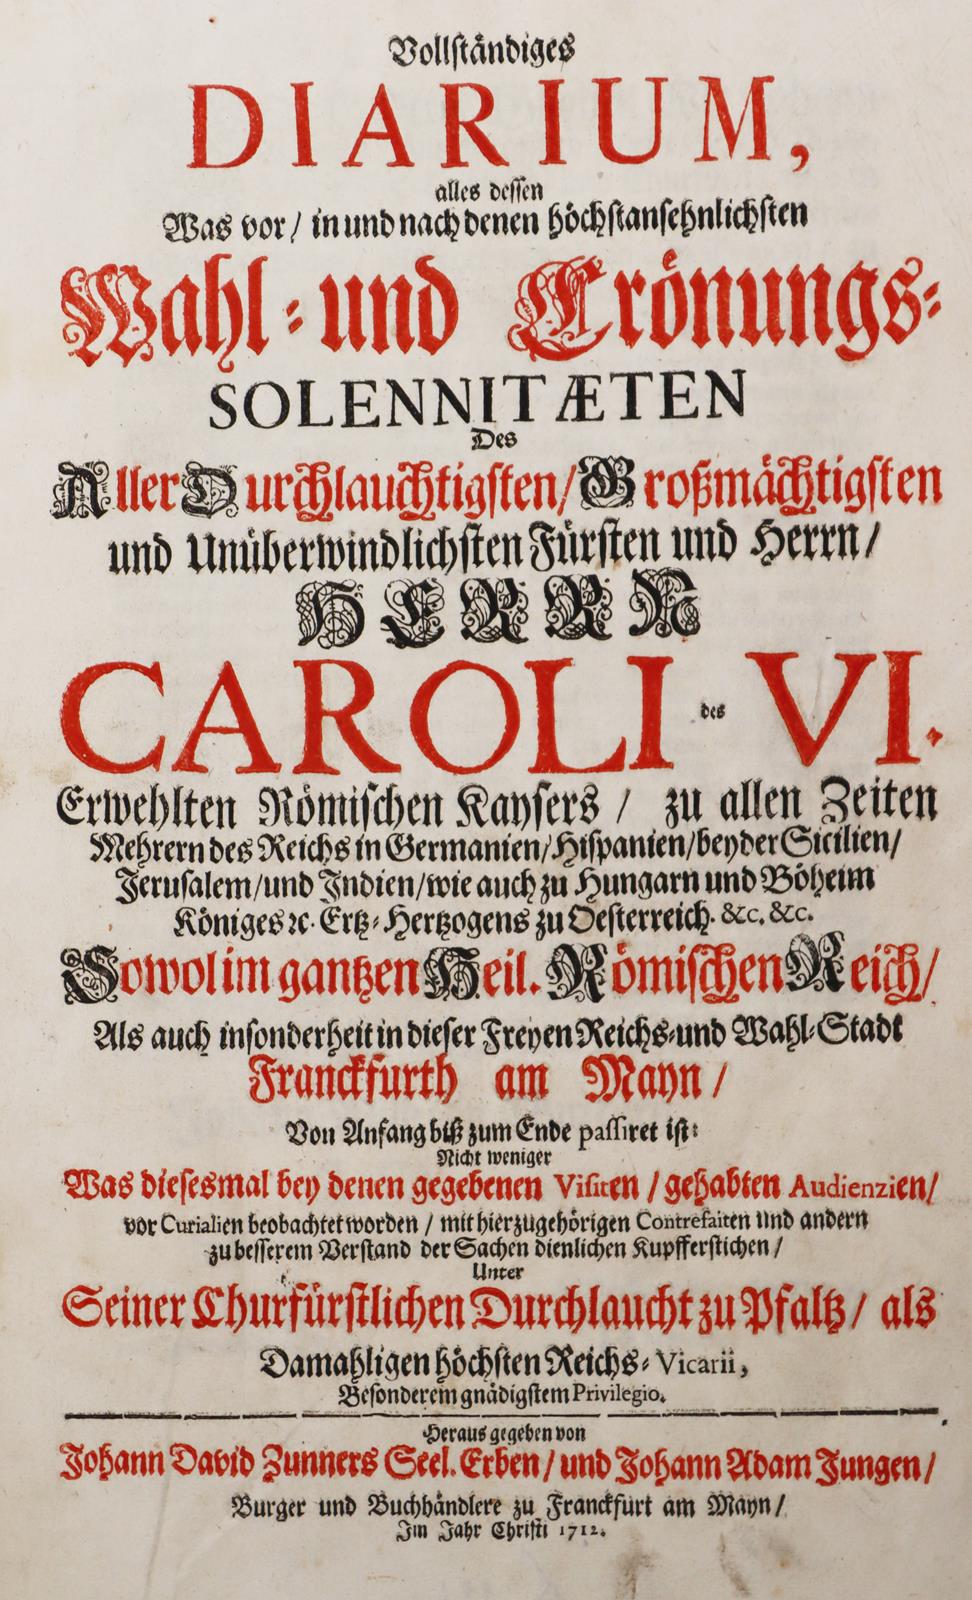 Vollständiges
DIARIUM,
alles dessen
Was vor / in und nach denen höchstansehnlichsten
Wahl- und Crönungs-
SOLENNITÆTEN
Des
Aller Durchlauchtigsten / Großmächtigsten
und Unüberwindlichsten Fürsten und Herrn /
HERRN
CAROLI des VI.
Erwehlten Römischen Kaysers / zu allen Zeiten
Mehrern des Reichs in Germanien / Hispanien / beyder Sicilien /
Jerusalem / und Indien / wie auch zu Hungarn und Böheim
Königes ꝛc. Ertz-Hertzogens zu Oesterreich. &c. &c.
Sowol im gantzen Heil. Römischen Reich /
Als auch insonderheit in dieser Freyen Reichs- und Wahl-Stadt
Franckfurth am Mayn /
Von Anfang biß zum Ende passiret ist:
Nicht weniger
Was diesesmal bey denen gegebenen Visiten / gehabten Audienzien /
vor Curialien beobachtet worden / mit hierzugehörigen Contrefaiten und andern
zu besserem Verstand der Sachen dienlichen Kupfferstichen /
Unter
Seiner Churfürstlichen Durchlaucht zu Pfaltz / als
Damahligen höchsten Reichs-Vicarii,
Besonderem gnädigstem Privilegio.
Heraus gegeben von
Johann David Zunners Seel. Erben / und Johann Adam Jungen /
Burger und Buchhändlere zu Franckfurt am Mayn /
Im Jahr Christi 1712.